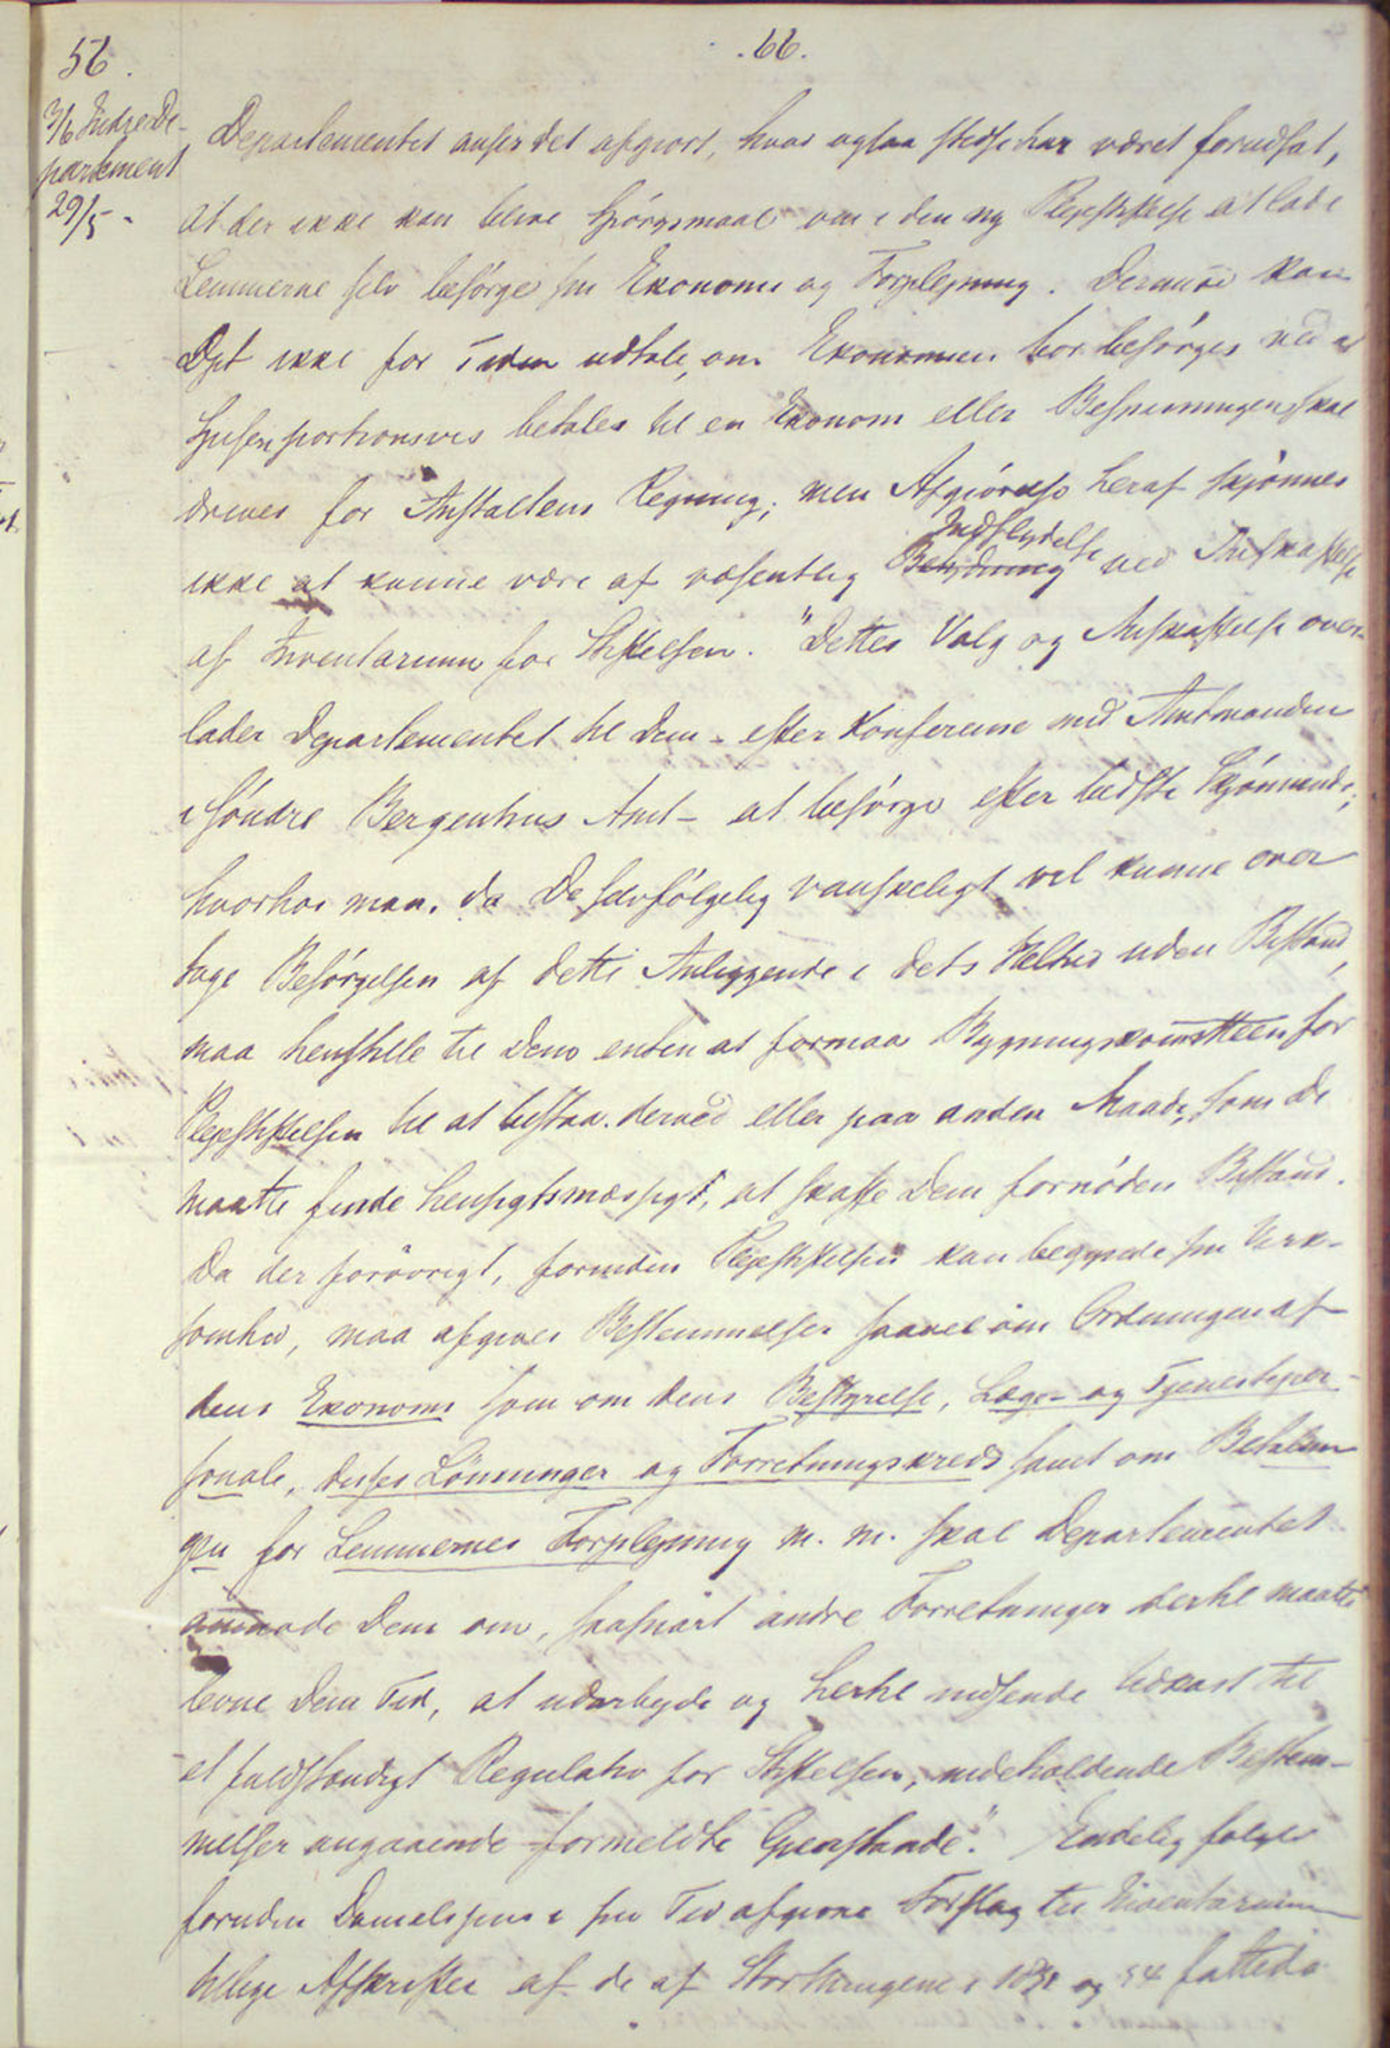 .66.
56.
3/6 Indre De-
partement
29/5.
Departementet anser det afgjort, hvad ogsaa stedse har været forudsat,
at der ikke kan blive Spörgsmaal om i den ny Plejestiftelse at lade
Lemmerne selv besörge sin Ekonomi og Forplejning. Derimod kan
Dpt ikke for Tiden udtale, om Ekonomien bor besörges ved at
Spisen portionsvis betales til en Ekonom eller Bespisningen skal
drives for Anstaltens Regning; men Afgjörelse heraf skjönnes
Indflydelse
ikke at kunne være af væsentlig Betydning ved Anskaffelse
af Inventarium for Stiftelsen. "Dettes Valg og Anskaffelse over-
lader Departementet til Dem - efter Konferense med Amtmanden
i Söndre Bergenhus Amt - at besörge efter bedste Skjönnende;
hvorhos man, da De selvfölgelig vanskeligt vil kunne over
tage Besörgelsen af dette Anliggende i dets Helhed uden Bistand,
maa henstille til Dem enten at formaa Bygningskomitteen for
Plejestiftelsen til at bistaa derved eller paa anden Maade, som De
maatte finde hensigtsmæssigt, at skaffe Dem fornöden Bistand.
Da der forövrigt, forinden Plejestiftelsen kan begynde sin Virk-
somhed, maa afgives Bestemmelser saavel om Ordningen af
dens Ekonomi som om dens Bestyrelse, Læge- og Tjenesteper-
sonale, disses Lönninger og Forretningskreds samt om Betalin
gen for Lemmernes Forplejning m. m. skal Departementet
anmode Dem om, saasnart andre Forretninger dertil maatte
levne Dem Tid, at udarbejde og hertil indsende Udkast til
et fuldstændigt Regulativ for Stiftelsen, indeholdende Bestem-
melser angaaende formeldte Gjenstande". Endelig fölger
foruden Danielssens i sin Tid afgivne Forslag til Inventarium
tillige Afskrifter af de af Storthingene i 1851 og 54 fattede